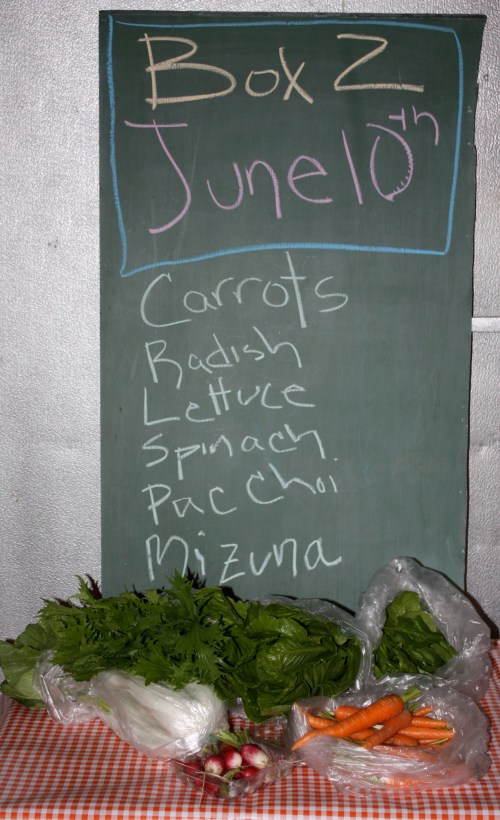 Box 2
June 10th
Carrots
Radish
Lettuce
Spinach
Pac Choi
Mizuna